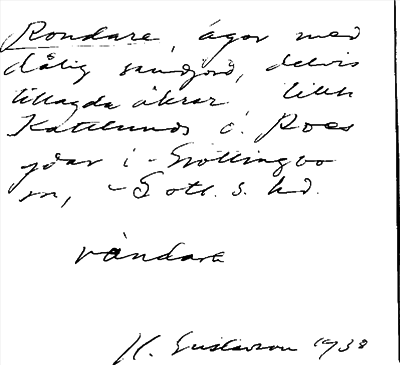 Rondare, ägor med
dålig sandjord, delvis
tillagda åkrar till
Kattlunds o. Roes
gdar i Grötlingbo
sn, Gotl. s. hd.
rȯndarε
H. Gustavson 1938